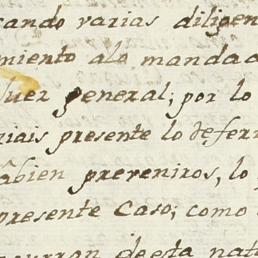 rando varias diligen
miento alo manda
luez general; por lo
riais presente lo deferr
âbien preveniros, lo
presente Caso; como
curran deesta nat